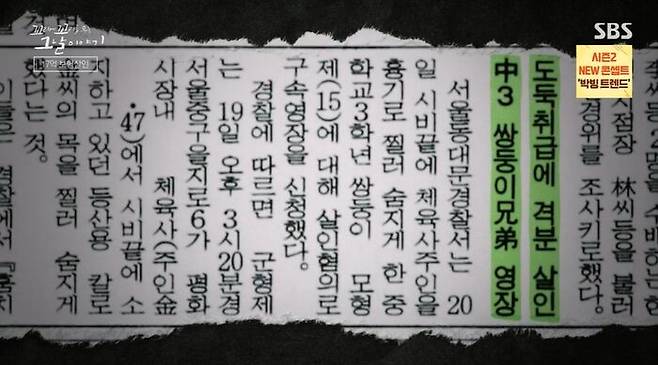 그날이야기
SBS
시즌2
NEW 콘셉트
'박빙 트렌드'
李씨등 2명을 수배하는한
지점장 林씨등을 불러
경위를 조사키로했다.
도둑취급에 격분 살인
中3 쌍둥이兄弟 영장
서울동대문경찰서는 20
일 시비끝에 체육사주인을
흉기로 찔러 숨지게 한 중
학교3학년 쌍둥이 모형
제(15)에 대해 살인혐의로
구속영장을 신청했다.
경찰에 따르면 군형제
는 19일 오후 3시20분경
서울중구을지로6가 평화
시장내 체육사(주인金
·47)에서 시비끝에 소
지하고 있던 등산용 칼로
金씨의 목을 찔러 숨지게
했다는 것.
이들은 경찰에서 「훔치